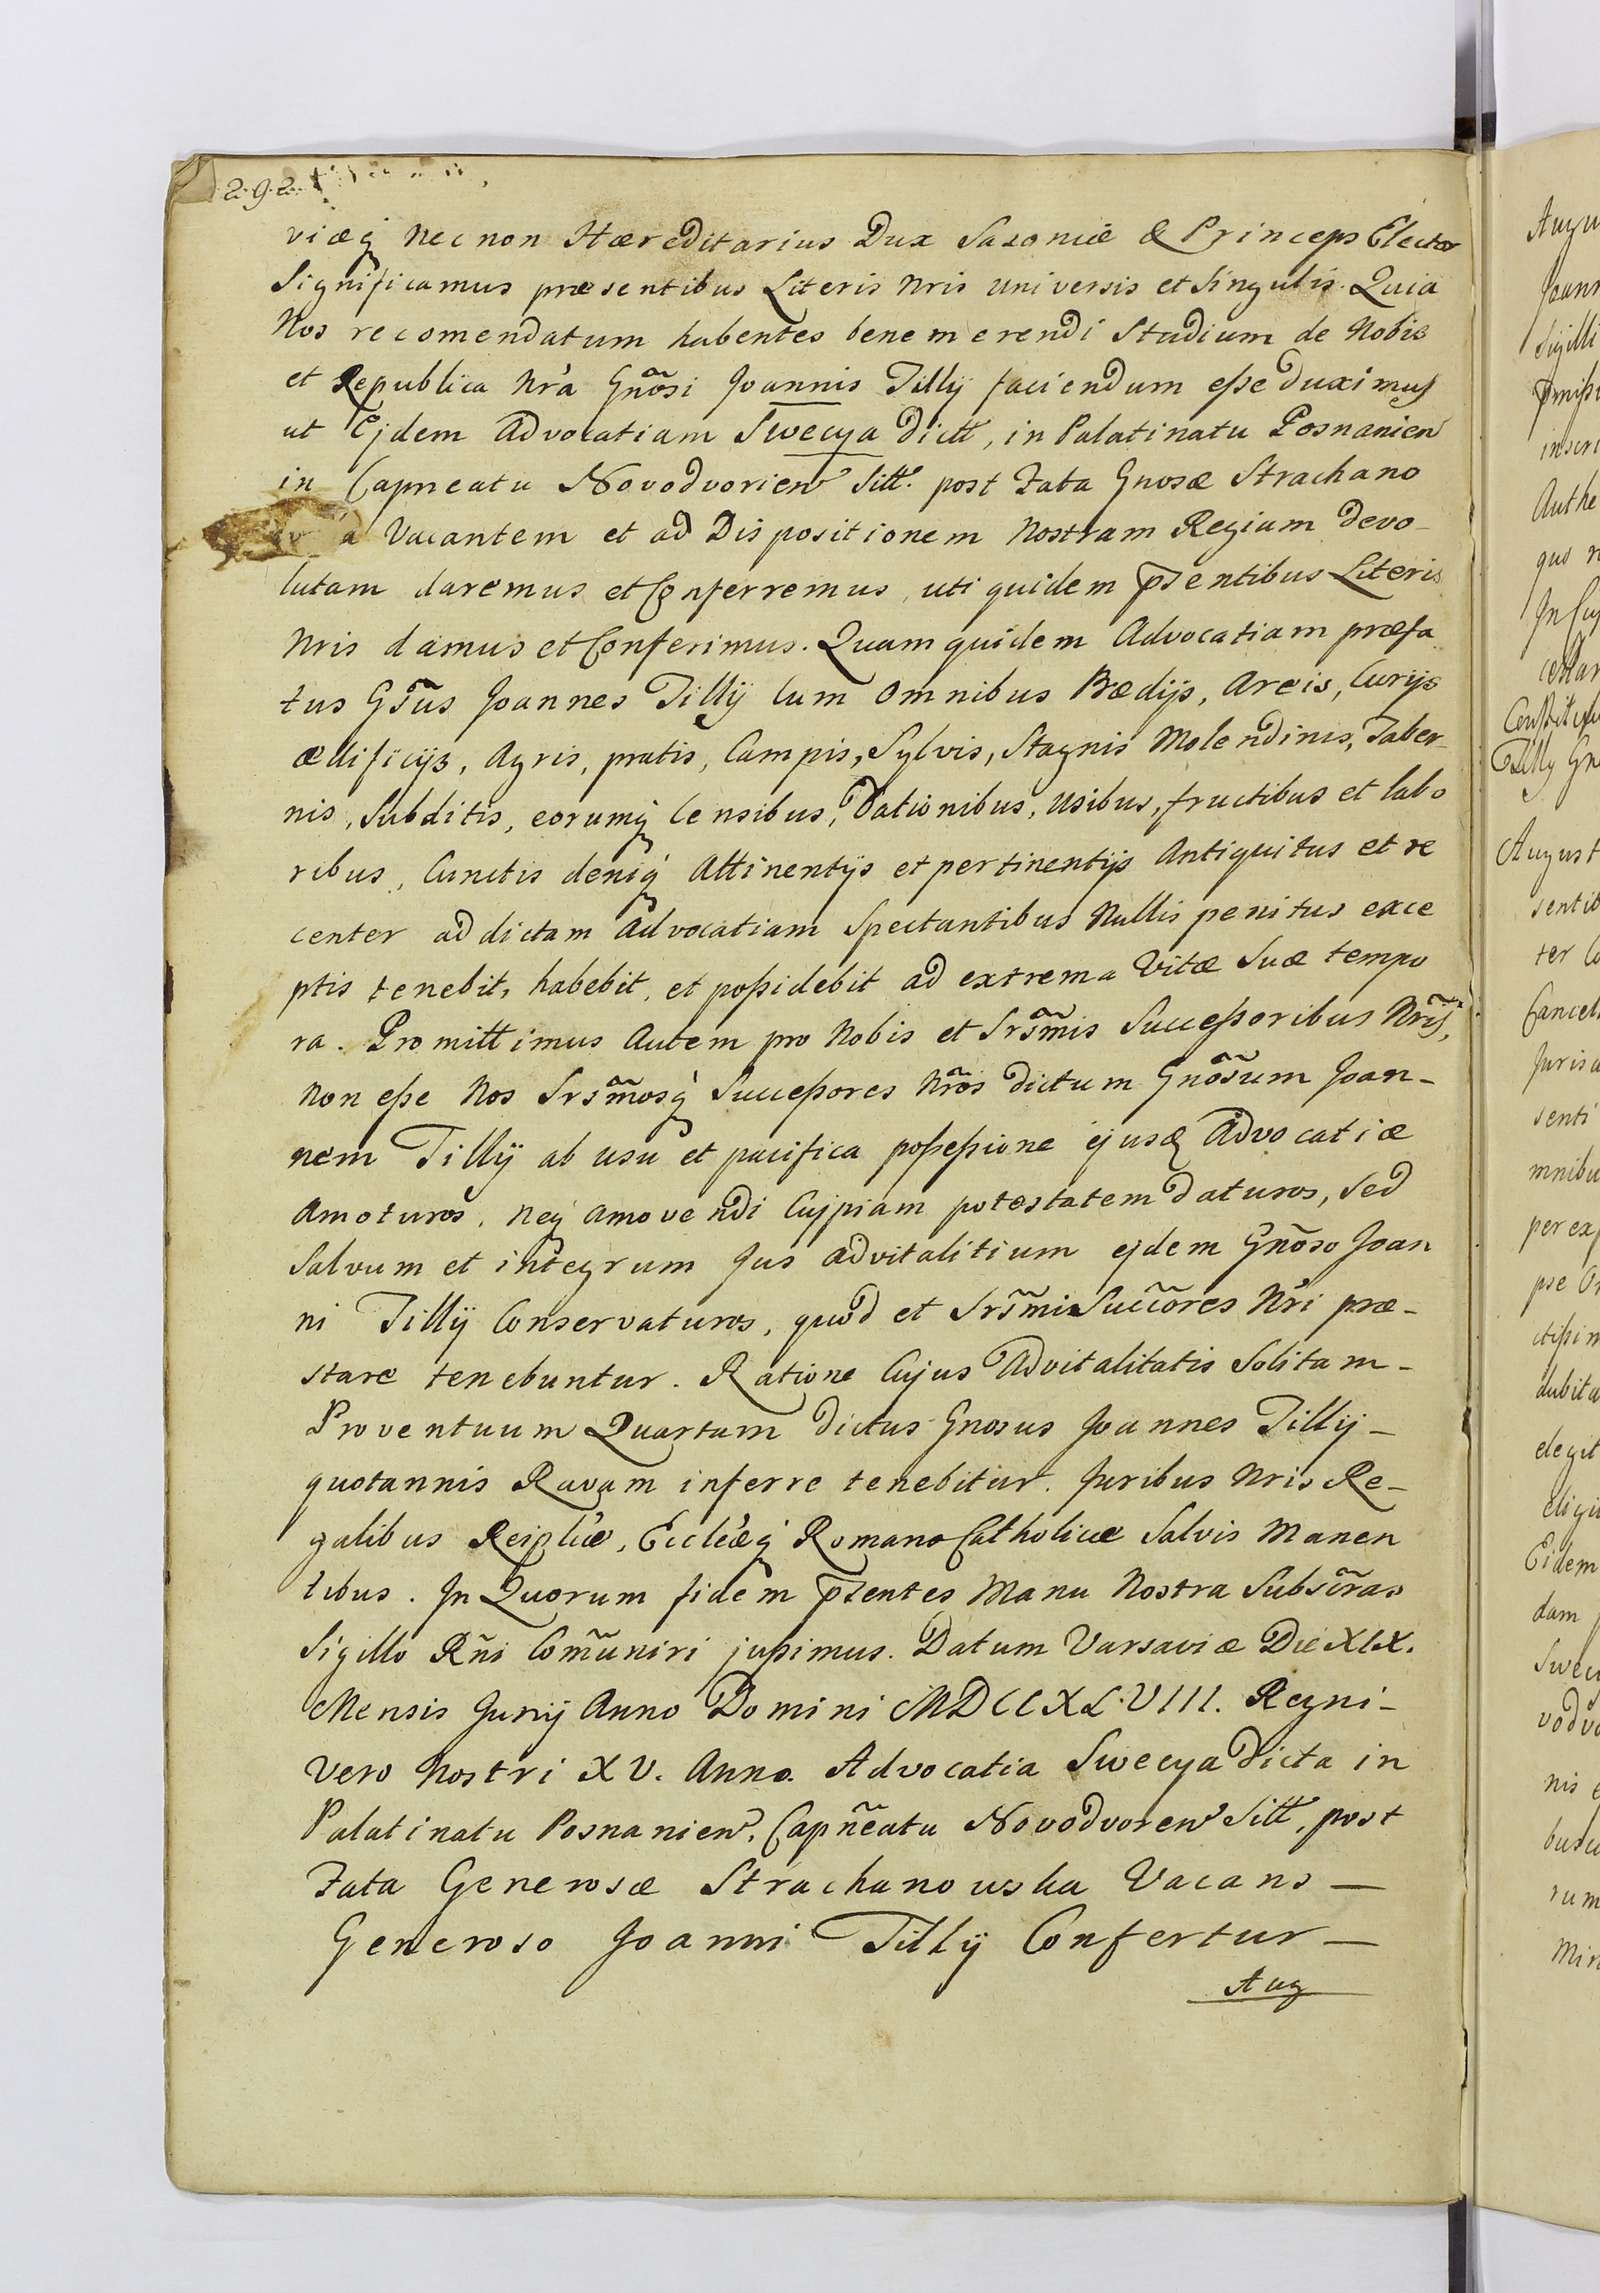 2.9.2.
viæq́ necnon Hæreditarius Dux Saxoniæ & Princeps Elector
Significamus præsentibus Literis Nris universis et Singulis. Quia
Nos recomendatum habentes benemerendi Studium de Nobis
et Republica Nrá Gnõsi Joannis Tillÿ faciendum eße duximus
ut Ejdem Advocatiam Swecya dict, in Palatinatu Posnanien
in Capneatu Novodvorien Sitt. post Fata Gnosæ Strachano
a Vacantem et ad Dispositionem Nostram Regiam devo-
lutam daremus et Conferremus, uti quidem p̃sentibus Literis
Nris damus et Conferimus. Quam quidem Advocatiam præfa
tus Gs̃us Joannes Tillÿ Cum Omnibus Prædijs, Areis, Curijs
ædificijs, Agris, pratis, Campis, Sylvis, Stagnis Molendinis, Taber-
nis, Subditis, eorumq́ Censibus, Dationibus, usibus, fructibus et labo
ribus, Cunctis deniq́ Attinentijs et pertinentijs Antiquitus et re
center ad dictam Advocatiam Spectantibus Nullis penitus exce
ptis tenebit, habebit, et poßidebit ad extrema Vitæ Suæ tempo
ra. Promittimus Autem pro Nobis et Srs̃m̃is Succeßoribus Nrĩs,
Non eße Nos Srs̃m̃osq́ Succeßores Nrõs dictum Gnõsum Joan-
nem Tillÿ ab usu et pacifica poßeßione ejusq Advocatiæ
Amoturos, neq́ amovendi Cujpiam potestatem daturos, Sed
Salvum et integrum Jus advitalitium ejdem Gnõso Joan
ni Tillÿ Conservaturos, quod et Srs̃m̃i Succõres Nŕi præ-
stare tenebuntur. Ratione Cujus Advitalitatis Solitam-
Proventuum Quartam dictus Gnosus Joannes Tillÿ-
quotannis Ravam inferre tenebitur. Juribus Nris Re-
galibus Reiplicæ, Eccleæq́ Romano Catholicæ Salvis Manen
tibus. In Quorum fidem p̃sentes Manu Nostra Subscr̃as
Sigillo Rñi Com̃uniri jußimus. Datum Varsaviæ Die XIX.
Mensis Junij Anno Domini MDCCXL·VIII. Regni-
Vero Nostri XV. Anno. Advocatia Swecya dicta in
Palatinatu Posnanien, Capñeatu Novodvoren Sitt, post
Fata Generosæ Strachanowska Vacans-
Generoso Joanni Tillÿ Confertur-
Aug